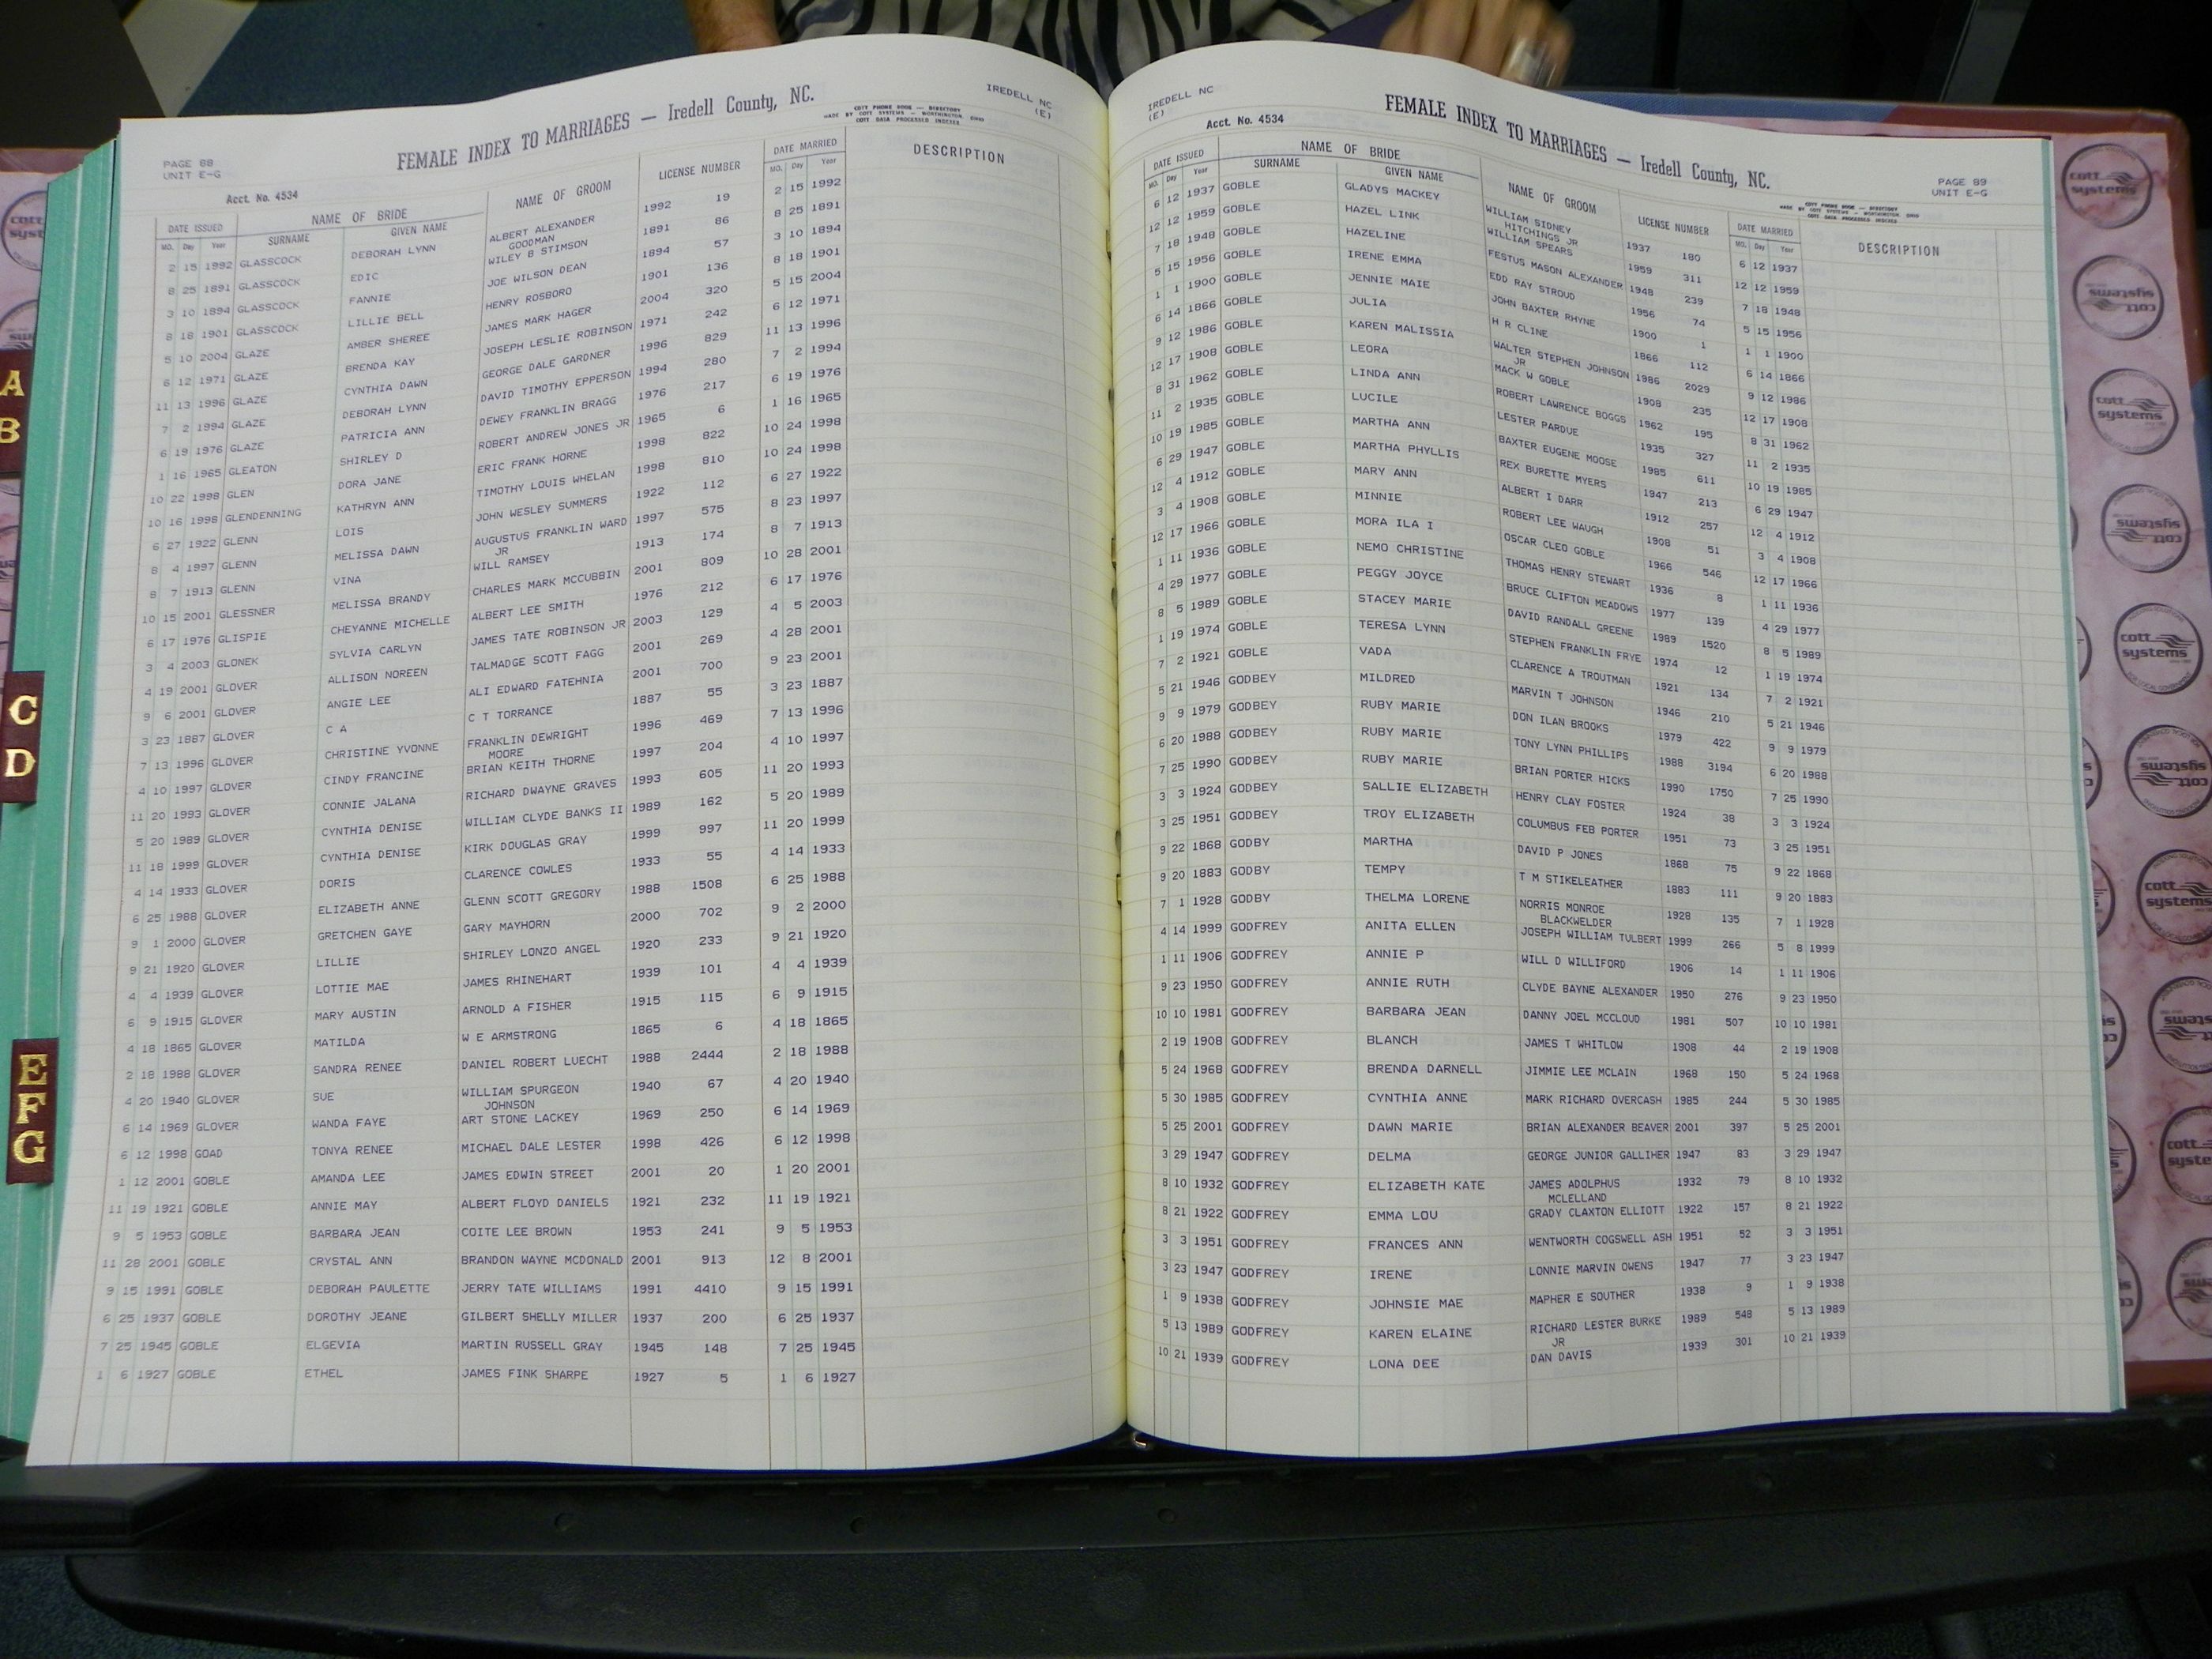 PAGE 88
UNIT E-G
FEMALE INDEX TO MARRIAGES — Iredell County, NC.
IREDELL NC
(E)
COTT PHONE BOOK — DIRECTORY
MADE BY COTT SYSTEMS — WORTHINGTON, OHIO
COTT DATA PROCESSED INDEXES
Acct. No. 4534
DATE ISSUED NAME OF BRIDE NAME OF GROOM LICENSE NUMBER DATE MARRIED DESCRIPTION
MO. Day Year SURNAME GIVEN NAME MO. Day Year
2 15 1992 GLASSCOCK DEBORAH LYNN ALBERT ALEXANDER 1992 19 2 15 1992
GOODMAN
8 25 1891 GLASSCOCK EDIC WILEY B STIMSON 1891 86 8 25 1891
3 10 1894 GLASSCOCK FANNIE JOE WILSON DEAN 1894 57 3 10 1894
8 18 1901 GLASSCOCK LILLIE BELL HENRY ROSBORO 1901 136 8 18 1901
5 10 2004 GLAZE AMBER SHEREE JAMES MARK HAGER 2004 320 5 15 2004
6 12 1971 GLAZE BRENDA KAY JOSEPH LESLIE ROBINSON 1971 242 6 12 1971
11 13 1996 GLAZE CYNTHIA DAWN GEORGE DALE GARDNER 1996 829 11 13 1996
7 2 1994 GLAZE DEBORAH LYNN DAVID TIMOTHY EPPERSON 1994 280 7 2 1994
6 19 1976 GLAZE PATRICIA ANN DEWEY FRANKLIN BRAGG 1976 217 6 19 1976
1 16 1965 GLEATON SHIRLEY D ROBERT ANDREW JONES JR 1965 6 1 16 1965
10 22 1998 GLEN DORA JANE ERIC FRANK HORNE 1998 822 10 24 1998
10 16 1998 GLENDENNING KATHRYN ANN TIMOTHY LOUIS WHELAN 1998 810 10 24 1998
6 27 1922 GLENN LOIS JOHN WESLEY SUMMERS 1922 112 6 27 1922
8 4 1997 GLENN MELISSA DAWN AUGUSTUS FRANKLIN WARD 1997 575 8 23 1997
JR
8 7 1913 GLENN VINA WILL RAMSEY 1913 174 8 7 1913
10 15 2001 GLESSNER MELISSA BRANDY CHARLES MARK MCCUBBIN 2001 809 10 28 2001
6 17 1976 GLISPIE CHEYANNE MICHELLE ALBERT LEE SMITH 1976 212 6 17 1976
3 4 2003 GLONEK SYLVIA CARLYN JAMES TATE ROBINSON JR 2003 129 4 5 2003
4 19 2001 GLOVER ALLISON NOREEN TALMADGE SCOTT FAGG 2001 269 4 28 2001
9 6 2001 GLOVER ANGIE LEE ALI EDWARD FATEHNIA 2001 700 9 23 2001
3 23 1887 GLOVER C A C T TORRANCE 1887 55 3 23 1887
7 13 1996 GLOVER CHRISTINE YVONNE FRANKLIN DEWRIGHT 1996 469 7 13 1996
MOORE
4 10 1997 GLOVER CINDY FRANCINE BRIAN KEITH THORNE 1997 204 4 10 1997
11 20 1993 GLOVER CONNIE JALANA RICHARD DWAYNE GRAVES 1993 605 11 20 1993
5 20 1989 GLOVER CYNTHIA DENISE WILLIAM CLYDE BANKS II 1989 162 5 20 1989
11 18 1999 GLOVER CYNTHIA DENISE KIRK DOUGLAS GRAY 1999 997 11 20 1999
4 14 1933 GLOVER DORIS CLARENCE COWLES 1933 55 4 14 1933
6 25 1988 GLOVER ELIZABETH ANNE GLENN SCOTT GREGORY 1988 1508 6 25 1988
9 1 2000 GLOVER GRETCHEN GAYE GARY MAYHORN 2000 702 9 2 2000
9 21 1920 GLOVER LILLIE SHIRLEY LONZO ANGEL 1920 233 9 21 1920
4 4 1939 GLOVER LOTTIE MAE JAMES RHINEHART 1939 101 4 4 1939
6 9 1915 GLOVER MARY AUSTIN ARNOLD A FISHER 1915 115 6 9 1915
4 18 1865 GLOVER MATILDA W E ARMSTRONG 1865 6 4 18 1865
2 18 1988 GLOVER SANDRA RENEE DANIEL ROBERT LUECHT 1988 2444 2 18 1988
4 20 1940 GLOVER SUE WILLIAM SPURGEON 1940 67 4 20 1940
JOHNSON
6 14 1969 GLOVER WANDA FAYE ART STONE LACKEY 1969 250 6 14 1969
6 12 1998 GOAD TONYA RENEE MICHAEL DALE LESTER 1998 426 6 12 1998
1 12 2001 GOBLE AMANDA LEE JAMES EDWIN STREET 2001 20 1 20 2001
11 19 1921 GOBLE ANNIE MAY ALBERT FLOYD DANIELS 1921 232 11 19 1921
9 5 1953 GOBLE BARBARA JEAN COITE LEE BROWN 1953 241 9 5 1953
11 28 2001 GOBLE CRYSTAL ANN BRANDON WAYNE MCDONALD 2001 913 12 8 2001
9 15 1991 GOBLE DEBORAH PAULETTE JERRY TATE WILLIAMS 1991 4410 9 15 1991
6 25 1937 GOBLE DOROTHY JEANE GILBERT SHELLY MILLER 1937 200 6 25 1937
7 25 1945 GOBLE ELGEVIA MARTIN RUSSELL GRAY 1945 148 7 25 1945
1 6 1927 GOBLE ETHEL JAMES FINK SHARPE 1927 5 1 6 1927
IREDELL NC
(E)
FEMALE INDEX TO MARRIAGES — Iredell County, NC.
PAGE 89
UNIT E-G
Acct. No. 4534
COTT PHONE BOOK — DIRECTORY
MADE BY COTT SYSTEMS — WORTHINGTON, OHIO
COTT DATA PROCESSED INDEXES
DATE ISSUED NAME OF BRIDE NAME OF GROOM LICENSE NUMBER DATE MARRIED DESCRIPTION
MO. Day Year SURNAME GIVEN NAME MO. Day Year
6 12 1937 GOBLE GLADYS MACKEY WILLIAM SIDNEY 1937 180 6 12 1937
HITCHINGS JR
12 12 1959 GOBLE HAZEL LINK WILLIAM SPEARS 1959 311 12 12 1959
7 18 1948 GOBLE HAZELINE FESTUS MASON ALEXANDER 1948 239 7 18 1948
5 15 1956 GOBLE IRENE EMMA EDD RAY STROUD 1956 74 5 15 1956
1 1 1900 GOBLE JENNIE MAIE JOHN BAXTER RHYNE 1900 1 1 1 1900
6 14 1866 GOBLE JULIA H R CLINE 1866 112 6 14 1866
9 12 1986 GOBLE KAREN MALISSIA WALTER STEPHEN JOHNSON 1986 2029 9 12 1986
JR
12 17 1908 GOBLE LEORA MACK W GOBLE 1908 235 12 17 1908
8 31 1962 GOBLE LINDA ANN ROBERT LAWRENCE BOGGS 1962 195 8 31 1962
11 2 1935 GOBLE LUCILE LESTER PARDUE 1935 327 11 2 1935
10 19 1985 GOBLE MARTHA ANN BAXTER EUGENE MOOSE 1985 611 10 19 1985
6 29 1947 GOBLE MARTHA PHYLLIS REX BURETTE MYERS 1947 213 6 29 1947
12 4 1912 GOBLE MARY ANN ALBERT I DARR 1912 257 12 4 1912
3 4 1908 GOBLE MINNIE ROBERT LEE WAUGH 1908 51 3 4 1908
12 17 1966 GOBLE MORA ILA I OSCAR CLEO GOBLE 1966 546 12 17 1966
1 11 1936 GOBLE NEMO CHRISTINE THOMAS HENRY STEWART 1936 8 1 11 1936
4 29 1977 GOBLE PEGGY JOYCE BRUCE CLIFTON MEADOWS 1977 139 4 29 1977
8 5 1989 GOBLE STACEY MARIE DAVID RANDALL GREENE 1989 1520 8 5 1989
1 19 1974 GOBLE TERESA LYNN STEPHEN FRANKLIN FRYE 1974 12 1 19 1974
7 2 1921 GOBLE VADA CLARENCE A TROUTMAN 1921 134 7 2 1921
5 21 1946 GODBEY MILDRED MARVIN T JOHNSON 1946 210 5 21 1946
9 9 1979 GODBEY RUBY MARIE DON ILAN BROOKS 1979 422 9 9 1979
6 20 1988 GODBEY RUBY MARIE TONY LYNN PHILLIPS 1988 3194 6 20 1988
7 25 1990 GODBEY RUBY MARIE BRIAN PORTER HICKS 1990 1750 7 25 1990
3 3 1924 GODBEY SALLIE ELIZABETH HENRY CLAY FOSTER 1924 38 3 3 1924
3 25 1951 GODBEY TROY ELIZABETH COLUMBUS FEB PORTER 1951 73 3 25 1951
9 22 1868 GODBY MARTHA DAVID P JONES 1868 75 9 22 1868
9 20 1883 GODBY TEMPY T M STIKELEATHER 1883 111 9 20 1883
7 1 1928 GODBY THELMA LORENE NORRIS MONROE 1928 135 7 1 1928
BLACKWELDER
4 14 1999 GODFREY ANITA ELLEN JOSEPH WILLIAM TULBERT 1999 266 5 8 1999
1 11 1906 GODFREY ANNIE P WILL D WILLIFORD 1906 14 1 11 1906
9 23 1950 GODFREY ANNIE RUTH CLYDE BAYNE ALEXANDER 1950 276 9 23 1950
10 10 1981 GODFREY BARBARA JEAN DANNY JOEL MCCLOUD 1981 507 10 10 1981
2 19 1908 GODFREY BLANCH JAMES T WHITLOW 1908 44 2 19 1908
5 24 1968 GODFREY BRENDA DARNELL JIMMIE LEE MCLAIN 1968 150 5 24 1968
5 30 1985 GODFREY CYNTHIA ANNE MARK RICHARD OVERCASH 1985 244 5 30 1985
5 25 2001 GODFREY DAWN MARIE BRIAN ALEXANDER BEAVER 2001 397 5 25 2001
3 29 1947 GODFREY DELMA GEORGE JUNIOR GALLIHER 1947 83 3 29 1947
8 10 1932 GODFREY ELIZABETH KATE JAMES ADOLPHUS 1932 79 8 10 1932
MCLELLAND
8 21 1922 GODFREY EMMA LOU GRADY CLAXTON ELLIOTT 1922 157 8 21 1922
3 3 1951 GODFREY FRANCES ANN WENTWORTH COGSWELL ASH 1951 52 3 3 1951
3 23 1947 GODFREY IRENE LONNIE MARVIN OWENS 1947 77 3 23 1947
1 9 1938 GODFREY JOHNSIE MAE MAPHER E SOUTHER 1938 9 1 9 1938
5 13 1989 GODFREY KAREN ELAINE RICHARD LESTER BURKE 1989 548 5 13 1989
JR
10 21 1939 GODFREY LONA DEE DAN DAVIS 1939 301 10 21 1939
A
B
C
D
E
F
G
cott
systems
cott
systems
cott
systems
cott
systems
cott
systems
cott
systems
cott
systems